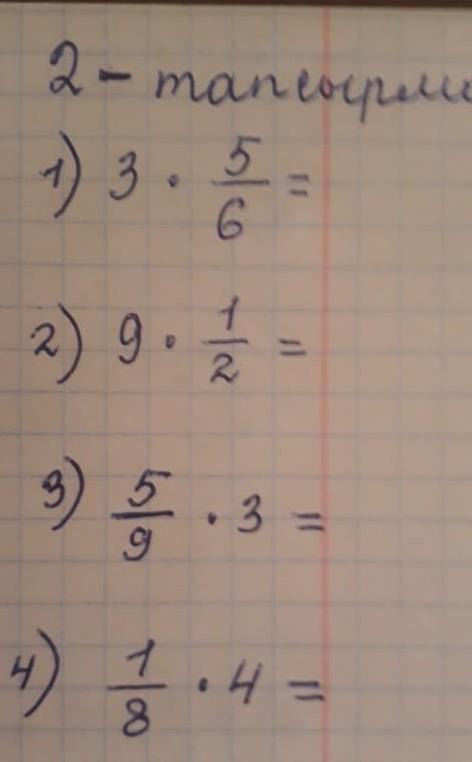 2 - тапсырма
1) 3 · 5/6 =
2) 9 · 1/2 =
3) 5/9 · 3 =
4) 1/8 · 4 =